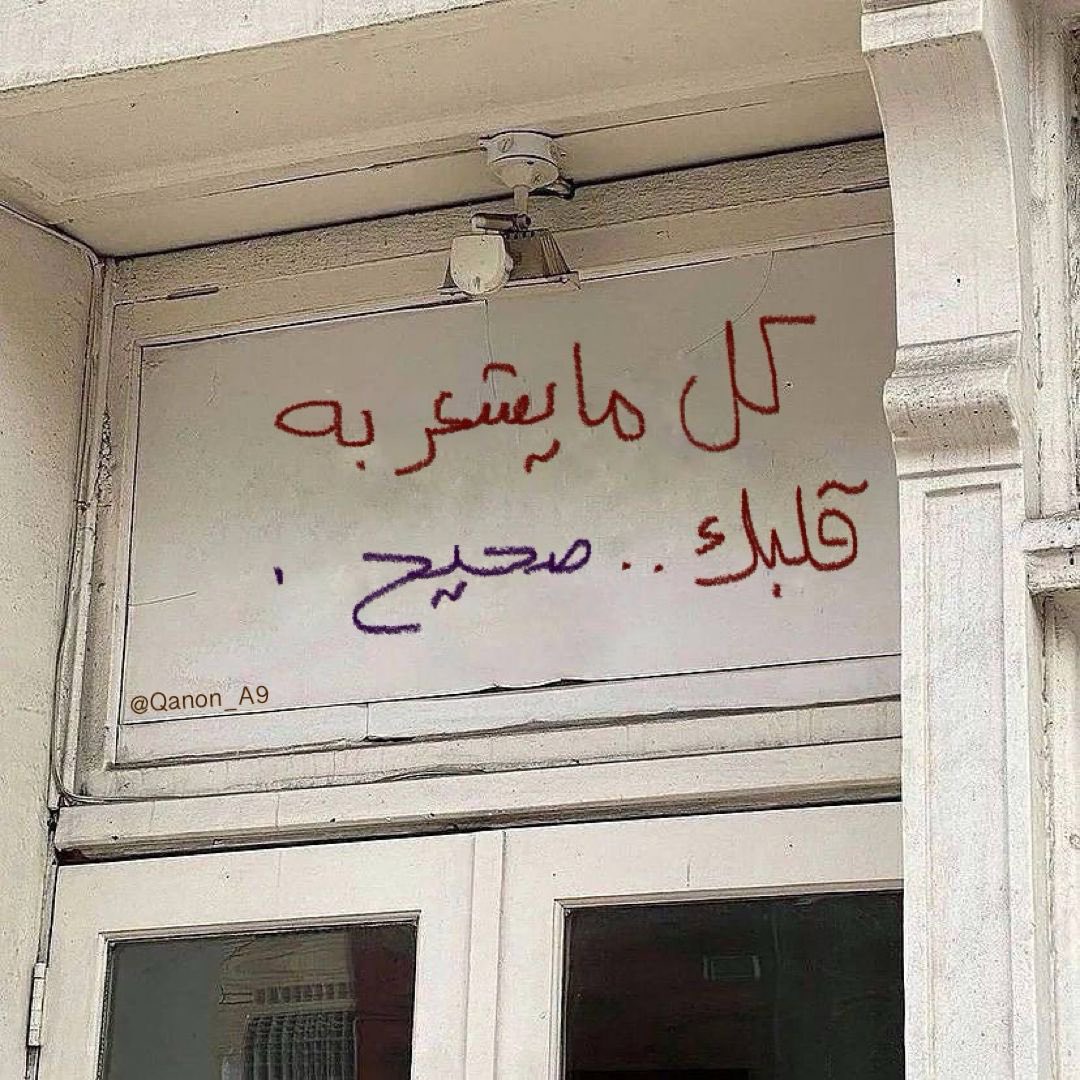 كل ما يشعر به
قلبك .. صحيح .
@Qanon_A9